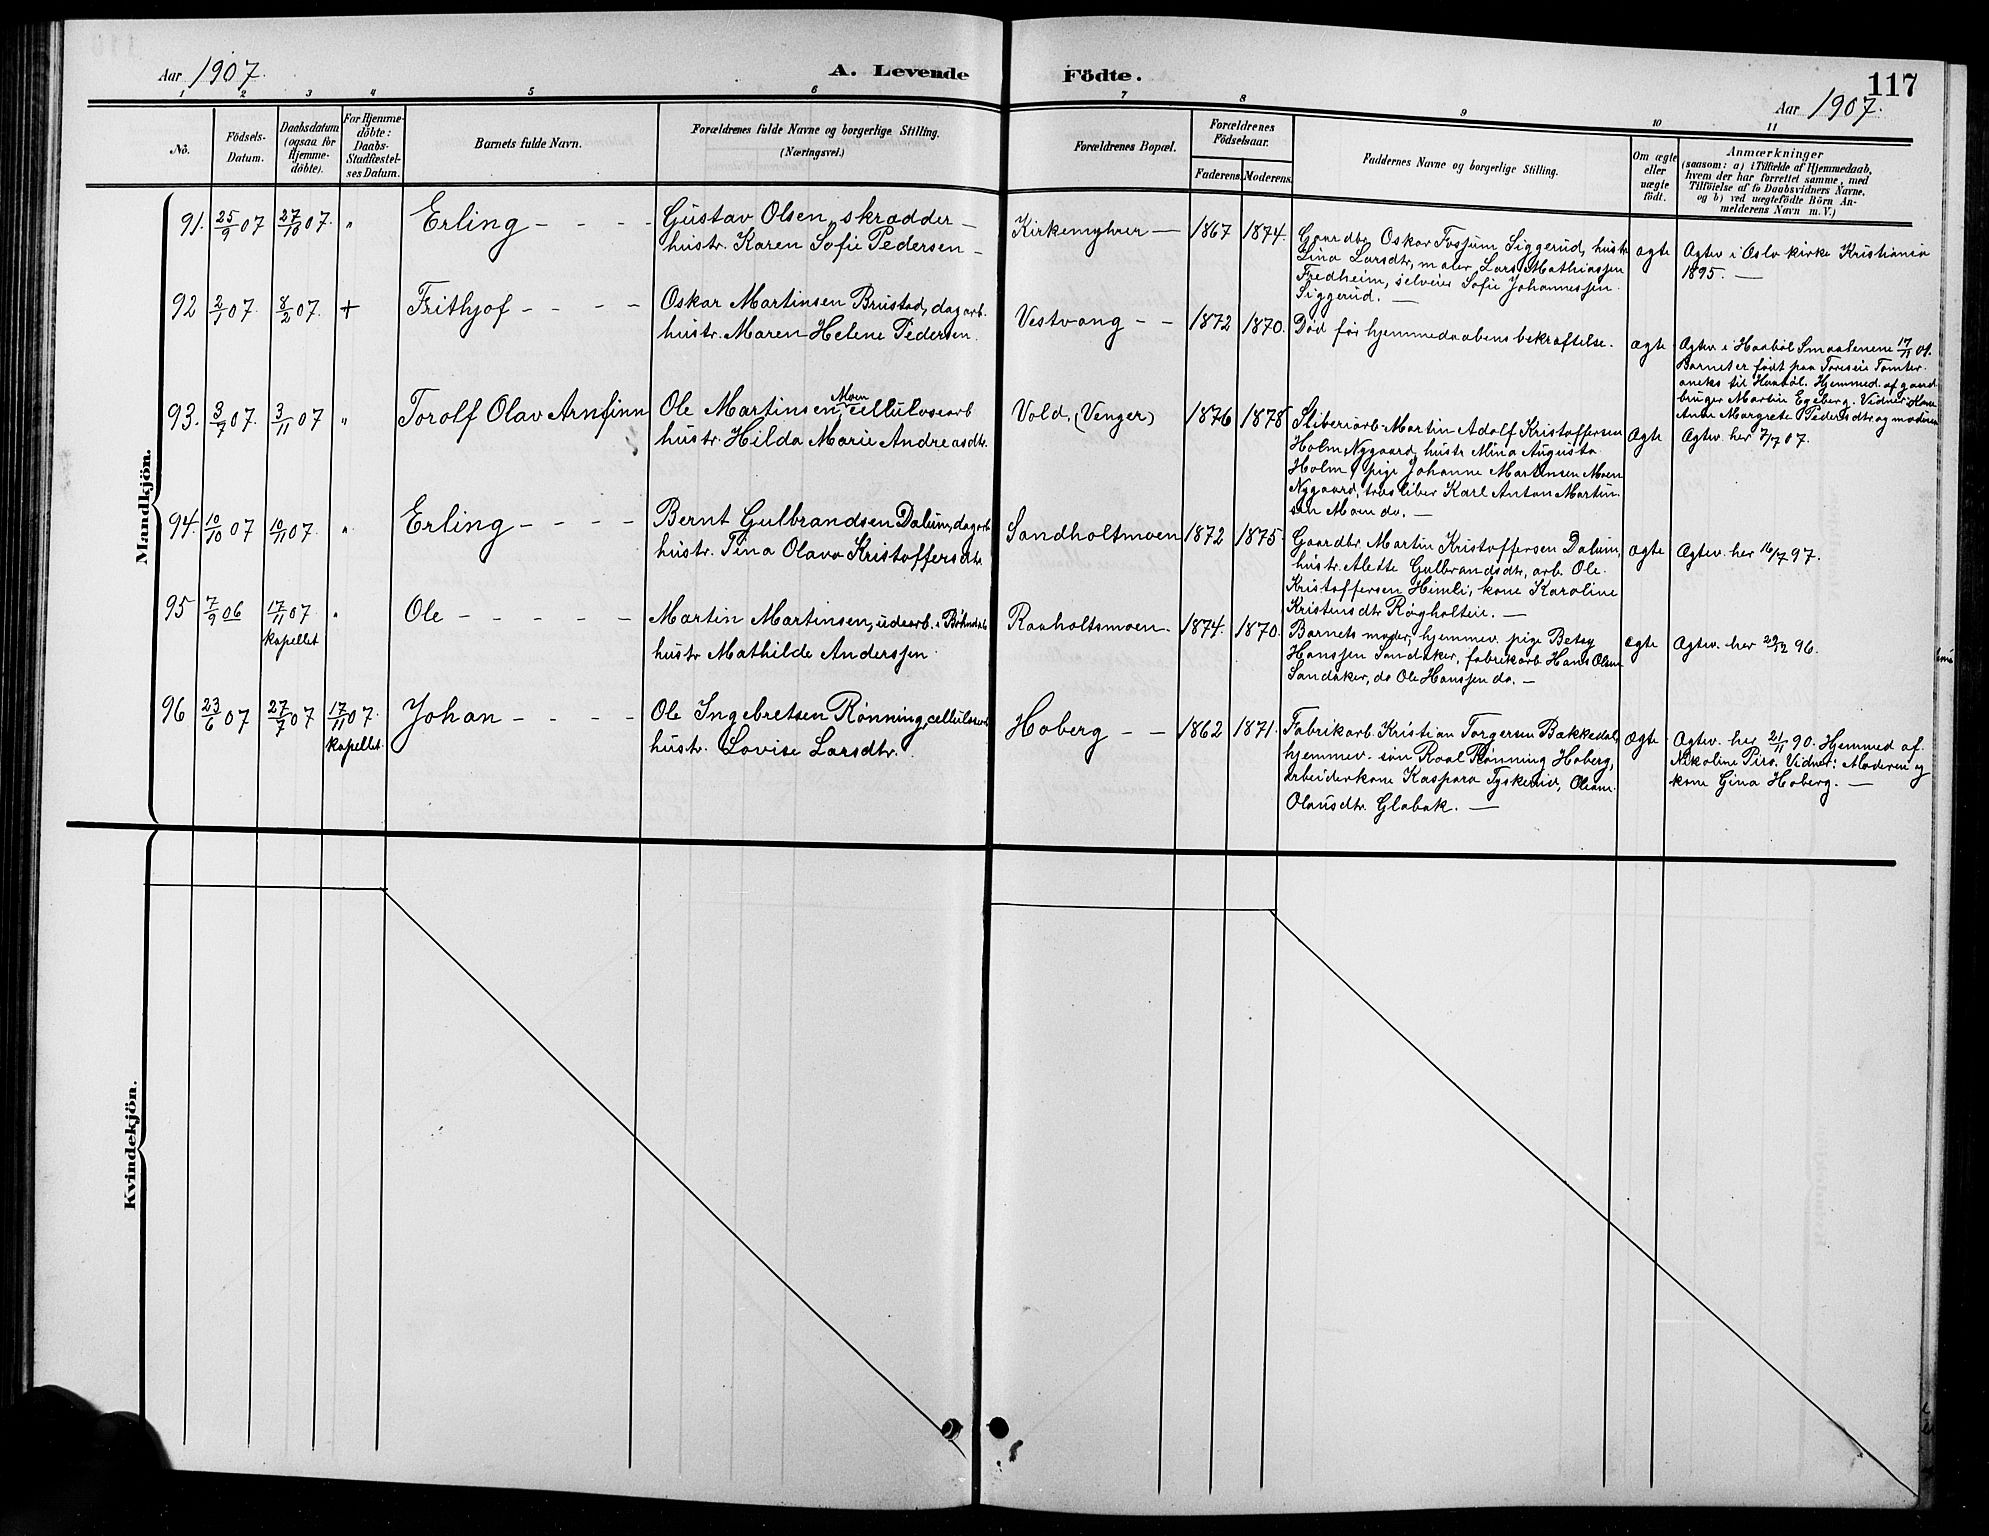 Aar 1907.
A. Levende Födte.
117
Aar 1907.
1 2 3 4 5 6 7 8 9 10 11
No.
Födsels-
Datum.
Daabsdatum
(ogsaa for
Hjemme-
döbte).
For Hjemme-
döbte:
Daabs-
Stadfæstel-
ses Datum.
Barnets fulde Navn.
Forældrenes fulde Navne og borgerlige Stilling.
(Næringsvei.)
Forældrenes Bopæl.
Forældrenes
Födselsaar.
Faderens. Moderens.
Faddernes Navne og borgerlige Stilling.
Om ægte
eller
uægte
födt.
Anmærkninger
(saasom: a) i Tilfælde af Hjemmedaab,
hvem der har forrettet samme, med
Tilföielse af to Daabsvidners Navne,
og b) ved uægtefödte Börn An-
melderens Navn m. V.)
Mandkjön.
91. 25/9 07 27/10 07. " Erling - - - -
Gustav Olsen, skrædder -
hustr. Karen Sofie Pedersen -
Kirkemyhrer - 1867 1874.
Gaardbr. Oskar Fossum Siggerud, hustr.
Lina Larsdtr, maler Lars Mathiassen
Fredheim, selveier Sofie Johannessen
Siggerud. -
ægte
Ægtev. i Oslo kirke Kristiania
1895. -
92 2/1 07. 8/2 07. + Frithjof - - - -
Oskar Martinsen Brustad, dagarb.
hustr. Maren Helene Pedersen.
Vestvang - - 1872 1870.
Død før hjemmedaabens bekræftelse.
ægte
Ægtev. i Haabøl Smaalenene 17/11 01.
Barnet er født paa Foreseie Tomter
aneks til Haabøl. Hjemmed. af gaard
bruger Martin Egeberg. Vidner: Kone
Anne Margrete Pedersdtr og moderen
93. 3/7 07. 3/11 07 " Torolf Olav Arnfinn
Ole Martinsen Moen cellulosearb
hustr. Hilda Marie Andreasdtr.
Vold, (Venger) 1876 1878
Sliberiarb. Martin Adolf Kristoffersen
Holm Nygaard, hustr Mina Augusta
Holm, pige Johanne Martinsen Moen
Nygaard, træsliber Karl Anton Martin-
sen Moen do. -
Ægte
Ægtev. her 7/7 07.
94. 10/10 07 10/11 07. " Erling - - - -
Bernt Gulbrandsen Dalum, dagarb
hustr. Tina Olava Kristoffersdtr
Sandholtmoen 1872 1875.
Gaardbr. Martin Kristoffersen Dalum,
hustr. Alette Gulbrandsdtr, arb. Ole
Kristoffersen Himli, kone Karoline
Kristensdtr Røgholteie. -
ægte
Ægtev. her 16/7 97.
95 7/9 06 17/11 07 " Ole - - - - -
kapellet
Martin Martinsen, udearb. i Bøhndal
hustr Mathilde Anderssen
Raaholtsmoen. 1874. 1870.
Barnets moder, hjemmev. pige Betsy
Hanssen Sandaker, fabrikarb. Hans Olsen
Sandaker, do Ole Hanssen do. -
ægte
Ægtev. her 29/12 96.
96 23/6 07 27/7 07 17/11 07. Johan - - - -
kapellet
Ole Ingebretsen Rønning, cellulosearb
hustr. Lovise Larsdtr.
Hoberg - - 1862 1871.
Fabrikarb. Kristian Torgersen Bakkedal,
hjemmev. søn Roal Rønning Hoberg,
arbeiderkone Kaspara Tyskeeie,
Olausdtr. Glabak. -
ægte
Ægtev. her 21/11 90. Hjemmed af
Nikoline Piro. Vidner: Moderen og
kone Gina Hoberg. -
Kvindekjön.